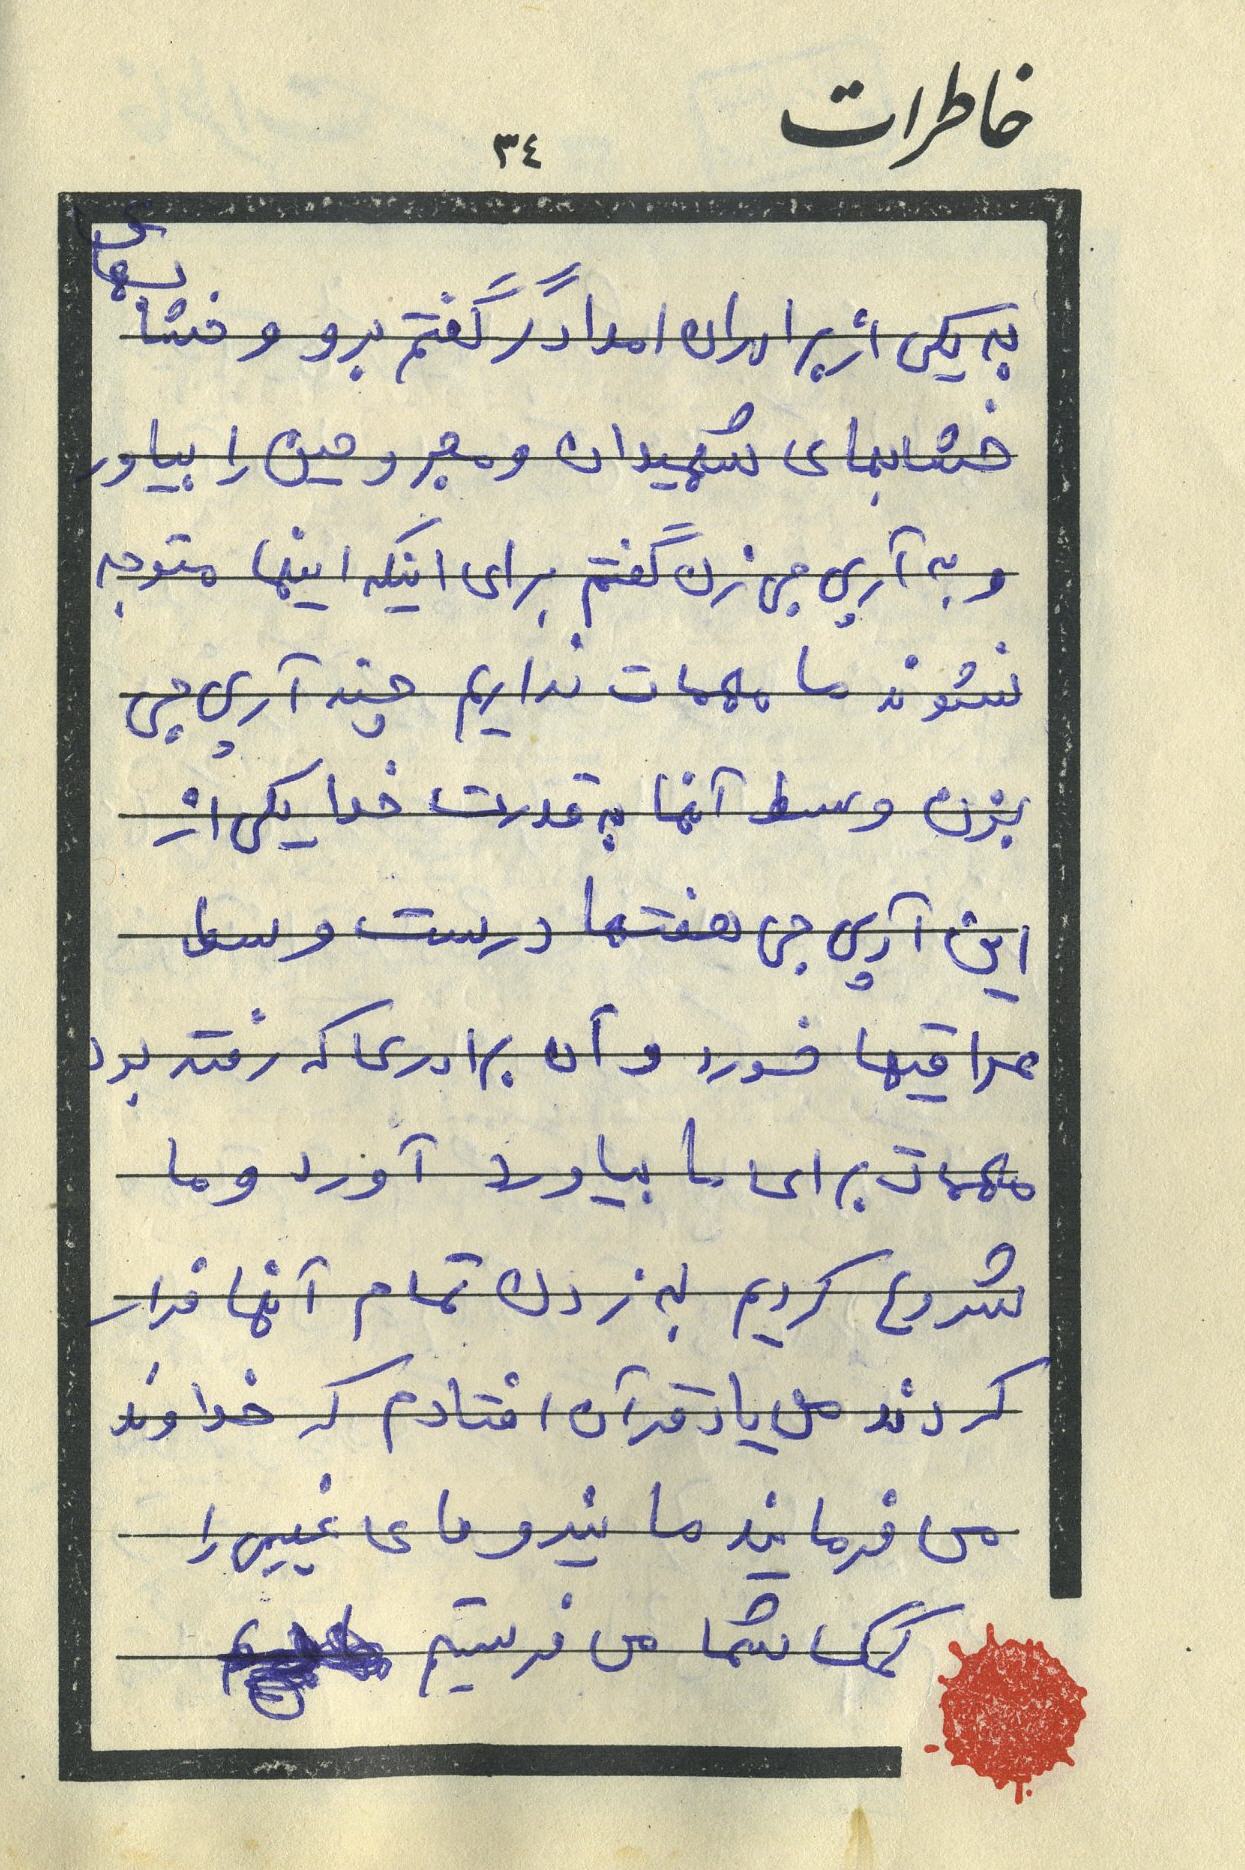 خاطرات
٣٤
به یکی از برادران امدادگر گفتم برو و فشا
خشابهای شهیدان و مجروحین را بیاور
و به آرپی جی زن گفتم برای اینکه اینها متوجه
نشوند ما مهمات نداریم چند آرپی جی
بزن وسط آنها به قدرت خدا یکی از
این آرپی جی هفتها درست وسط
عراقیها خورد و آن برادری که رفته بود
مهمات برای ما بیاورد آورد و ما
شروع کردیم به زدن تمام آنها فرار
کردند من یاد قرآن افتادم که خداوند
می فرمایند ما نیروهای غیبی را
کمک شما می فرستیم